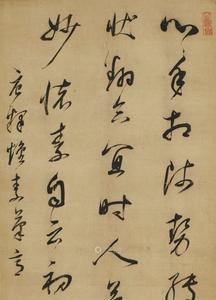 心手相師勢轉
狀翻合宜時人
妙懷素自云初
唐釋懷素